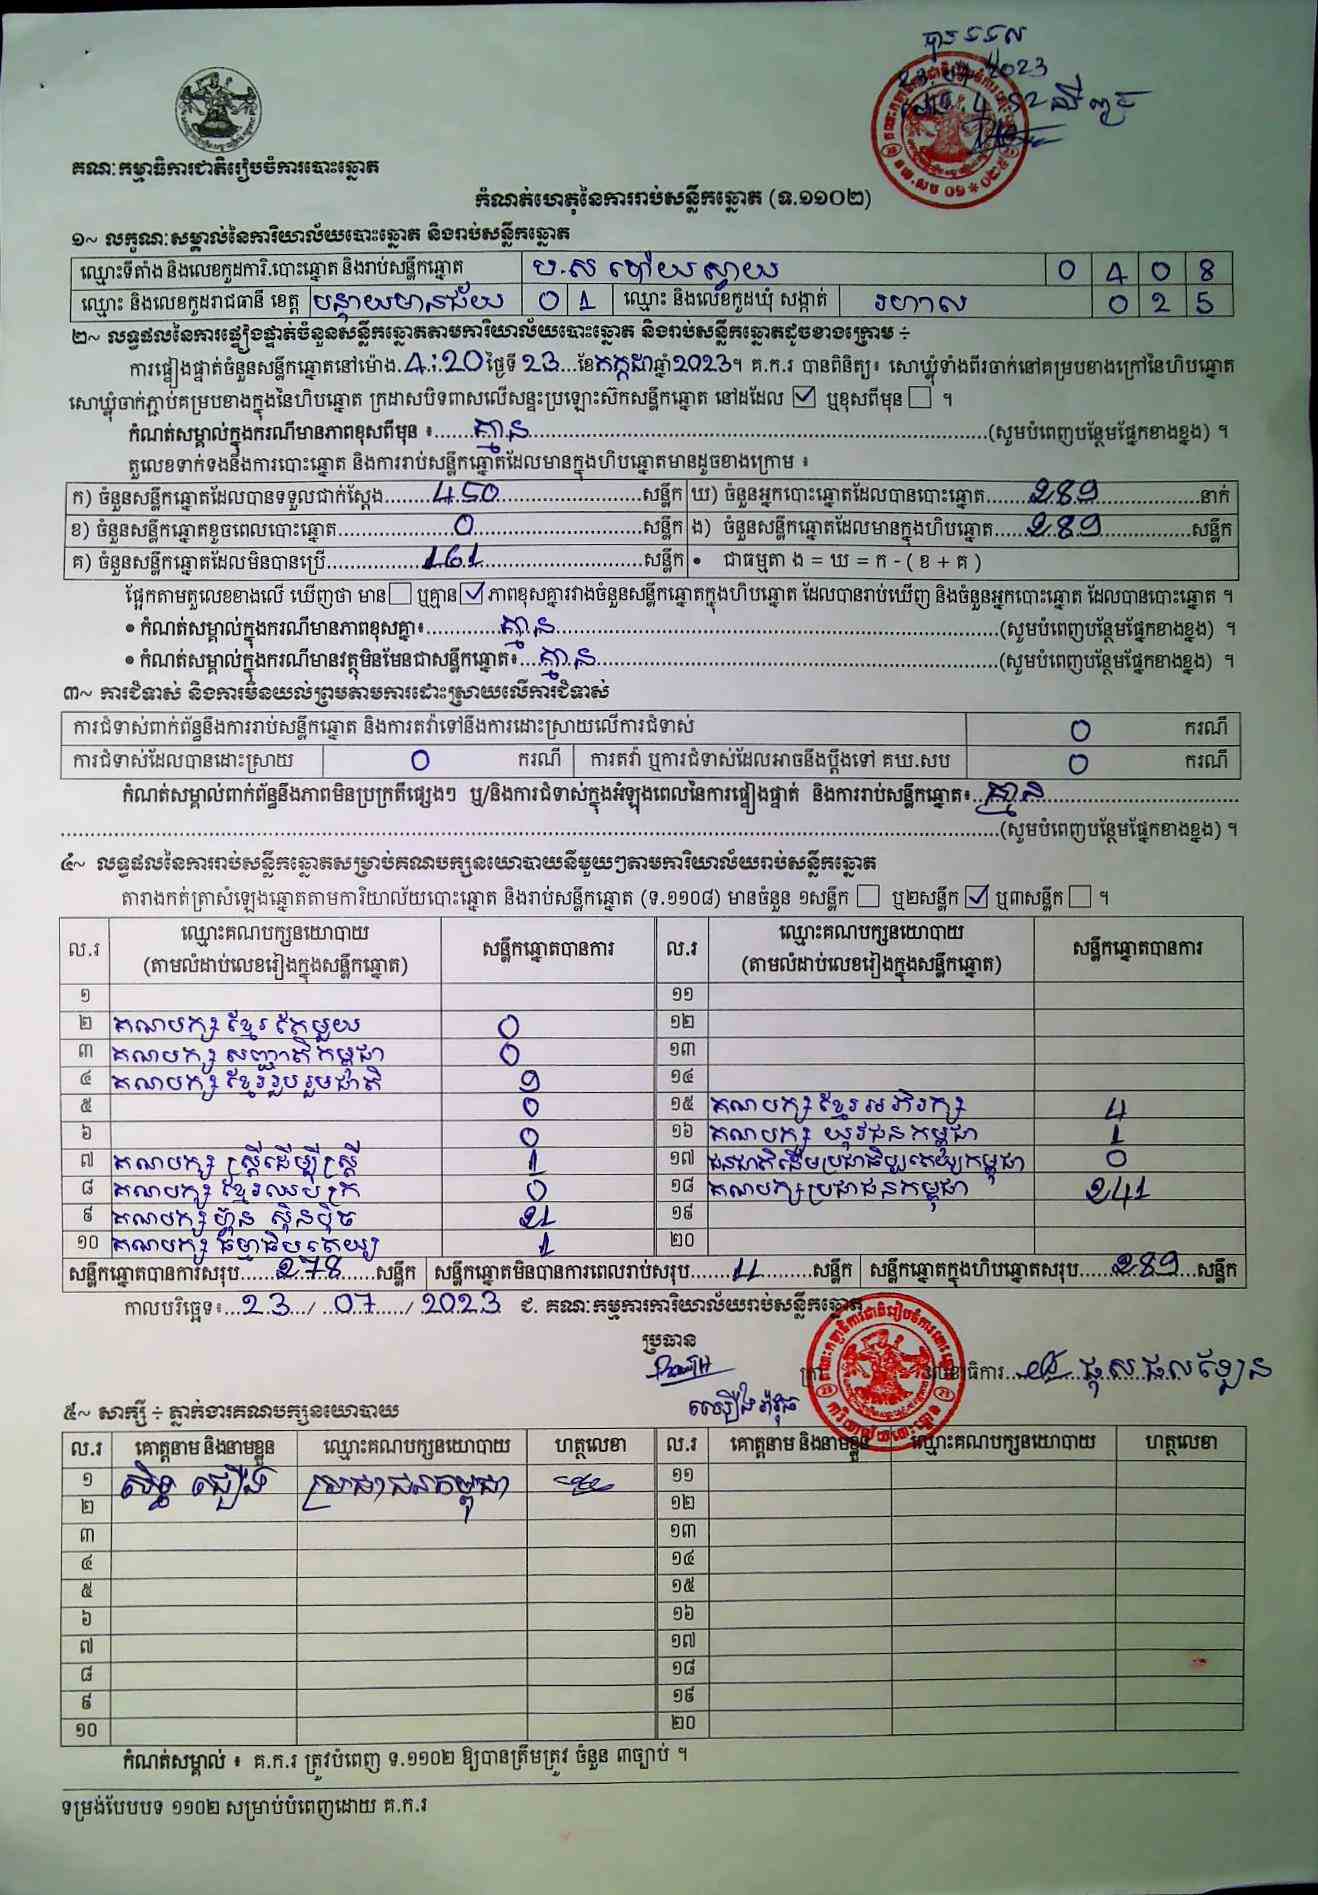 បានទទួល
23.07.2023
គណៈកម្មាធិការជាតិរៀបចំការបោះឆ្នោត
កំណត់ហេតុនៃការរាប់សន្លឹកឆ្នោត (ទ.១១០២)
១~ លក្ខណៈសម្គាល់នៃការិយាល័យបោះឆ្នោត និងរាប់សន្លឹកឆ្នោត
ឈ្មោះទីតាំង និងលេខកូដការិ.បោះឆ្នោត និងរាប់សន្លឹកឆ្នោត ប.ស ប៉ោយស្វាយ 0 4 0 8
ឈ្មោះ និងលេខកូដរាជធានី ខេត្ត បន្ទាយមានជ័យ 0 1 ឈ្មោះ និងលេខកូដឃុំ សង្កាត់ រហាល 0 2 5
២~ លទ្ធផលនៃការផ្ទៀងផ្ទាត់ចំនួនសន្លឹកឆ្នោតតាមការិយាល័យបោះឆ្នោត និងរាប់សន្លឹកឆ្នោតដូចខាងក្រោម ÷
ការផ្ទៀងផ្ទាត់ចំនួនសន្លឹកឆ្នោតនៅម៉ោង.4.:.20 ថ្ងៃទី 23...ខែកក្កដាឆ្នាំ2023។ គ.ក.រ បានពិនិត្យ៖ សោឃ្លុំទាំងពីរចាក់នៅគម្របខាងក្រៅនៃហិបឆ្នោត
សោឃ្លុំចាក់ភ្ជាប់គម្របខាងក្នុងនៃហិបឆ្នោត ក្រដាសបិទពាសលើសន្ទះប្រឡោះស៊កសន្លឹកឆ្នោត នៅដដែល ☑ ឬខុសពីមុន ☐ ។
កំណត់សម្គាល់ក្នុងករណីមានភាពខុសពីមុន ៖.......គ្មាន.......(សូមបំពេញបន្ថែមផ្នែកខាងខ្នង) ។
តួលេខទាក់ទងនឹងការបោះឆ្នោត និងការរាប់សន្លឹកឆ្នោតដែលមានក្នុងហិបឆ្នោតមានដូចខាងក្រោម ៖
ក) ចំនួនសន្លឹកឆ្នោតដែលបានទទួលជាក់ស្តែង........450........សន្លឹក ឃ) ចំនួនអ្នកបោះឆ្នោតដែលបានបោះឆ្នោត.......289.......នាក់
ខ) ចំនួនសន្លឹកឆ្នោតខូចពេលបោះឆ្នោត........0........សន្លឹក ង) ចំនួនសន្លឹកឆ្នោតដែលមានក្នុងហិបឆ្នោត.......289.......សន្លឹក
គ) ចំនួនសន្លឹកឆ្នោតដែលមិនបានប្រើ........161........សន្លឹក • ជាធម្មតា ង = ឃ = ក - ( ខ + គ )
ផ្អែកតាមតួលេខខាងលើ ឃើញថា មាន ☐ ឬគ្មាន ☑ ភាពខុសគ្នារវាងចំនួនសន្លឹកឆ្នោតក្នុងហិបឆ្នោត ដែលបានរាប់ឃើញ និងចំនួនអ្នកបោះឆ្នោត ដែលបានបោះឆ្នោត ។
• កំណត់សម្គាល់ក្នុងករណីមានភាពខុសគ្នា៖.......គ្មាន.......(សូមបំពេញបន្ថែមផ្នែកខាងខ្នង) ។
• កំណត់សម្គាល់ក្នុងករណីមានវត្ថុមិនមែនជាសន្លឹកឆ្នោត៖....គ្មាន.......(សូមបំពេញបន្ថែមផ្នែកខាងខ្នង) ។
៣~ ការជំទាស់ និងការមិនយល់ព្រមតាមការដោះស្រាយលើការជំទាស់
ការជំទាស់ពាក់ព័ន្ធនឹងការរាប់សន្លឹកឆ្នោត និងការតវ៉ាទៅនឹងការដោះស្រាយលើការជំទាស់ 0 ករណី
ការជំទាស់ដែលបានដោះស្រាយ 0 ករណី ការតវ៉ា ឬការជំទាស់ដែលអាចនឹងប្តឹងទៅ គឃ.សប 0 ករណី
កំណត់សម្គាល់ពាក់ព័ន្ធនឹងភាពមិនប្រក្រតីផ្សេងៗ ឬ/និងការជំទាស់ក្នុងអំឡុងពេលនៃការផ្ទៀងផ្ទាត់ និងការរាប់សន្លឹកឆ្នោត៖..គ្មាន.......
.......(សូមបំពេញបន្ថែមផ្នែកខាងខ្នង) ។
៤~ លទ្ធផលនៃការរាប់សន្លឹកឆ្នោតសម្រាប់គណបក្សនយោបាយនីមួយៗតាមការិយាល័យរាប់សន្លឹកឆ្នោត
តារាងកត់ត្រាសំឡេងឆ្នោតតាមការិយាល័យបោះឆ្នោត និងរាប់សន្លឹកឆ្នោត (ទ.១១០៨) មានចំនួន ១សន្លឹក ☐ ឬ២សន្លឹក ☑ ឬ៣សន្លឹក ☐ ។
ល.រ ឈ្មោះគណបក្សនយោបាយ (តាមលំដាប់លេខរៀងក្នុងសន្លឹកឆ្នោត) សន្លឹកឆ្នោតបានការ ល.រ ឈ្មោះគណបក្សនយោបាយ (តាមលំដាប់លេខរៀងក្នុងសន្លឹកឆ្នោត) សន្លឹកឆ្នោតបានការ
១ ១១
២ គណបក្ស ខ្មែរតែមួយ 0 ១២
៣ គណបក្ស សញ្ជាតិកម្ពុជា 0 ១៣
៤ គណបក្ស ខ្មែររួបរួមជាតិ 9 ១៤
៥ 0 ១៥ គណបក្ស ខ្មែរអភិរក្ស 4
៦ 0 ១៦ គណបក្ស យុវជនកម្ពុជា 1
៧ គណបក្ស ស្ត្រីដើម្បីស្ត្រី 1 ១៧ ជនជាតិដើមប្រជាធិបតេយ្យកម្ពុជា 0
៨ គណបក្ស ខ្មែរឈប់ក្រ 0 ១៨ គណបក្សប្រជាជនកម្ពុជា 241
៩ គណបក្ស ហ៊្វុន ស៊ិនប៉ិច 21 ១៩
១០ គណបក្ស ធម្មាធិបតេយ្យ 1 ២០
សន្លឹកឆ្នោតបានការសរុប......278......សន្លឹក សន្លឹកឆ្នោតមិនបានការពេលរាប់សរុប.......11.......សន្លឹក សន្លឹកឆ្នោតក្នុងហិបឆ្នោតសរុប......289...សន្លឹក
កាលបរិច្ឆេទ៖...23.../...07.../ 2023 ជ. គណៈកម្មការការិយាល័យរាប់សន្លឹកឆ្នោត
ប្រធាន
លេខាធិការ
៥~ សាក្សី ÷ ភ្នាក់ងារគណបក្សនយោបាយ
ល.រ គោត្តនាម និងនាមខ្លួន ឈ្មោះគណបក្សនយោបាយ ហត្ថលេខា ល.រ គោត្តនាម និងនាមខ្លួន ឈ្មោះគណបក្សនយោបាយ ហត្ថលេខា
១ ប្រជាជនកម្ពុជា ១១
២ ១២
៣ ១៣
៤ ១៤
៥ ១៥
៦ ១៦
៧ ១៧
៨ ១៨
៩ ១៩
១០ ២០
កំណត់សម្គាល់ ៖ គ.ក.រ ត្រូវបំពេញ ទ.១១០២ ឱ្យបានត្រឹមត្រូវ ចំនួន ៣ច្បាប់ ។
ទម្រង់បែបបទ ១១០២ សម្រាប់បំពេញដោយ គ.ក.រ